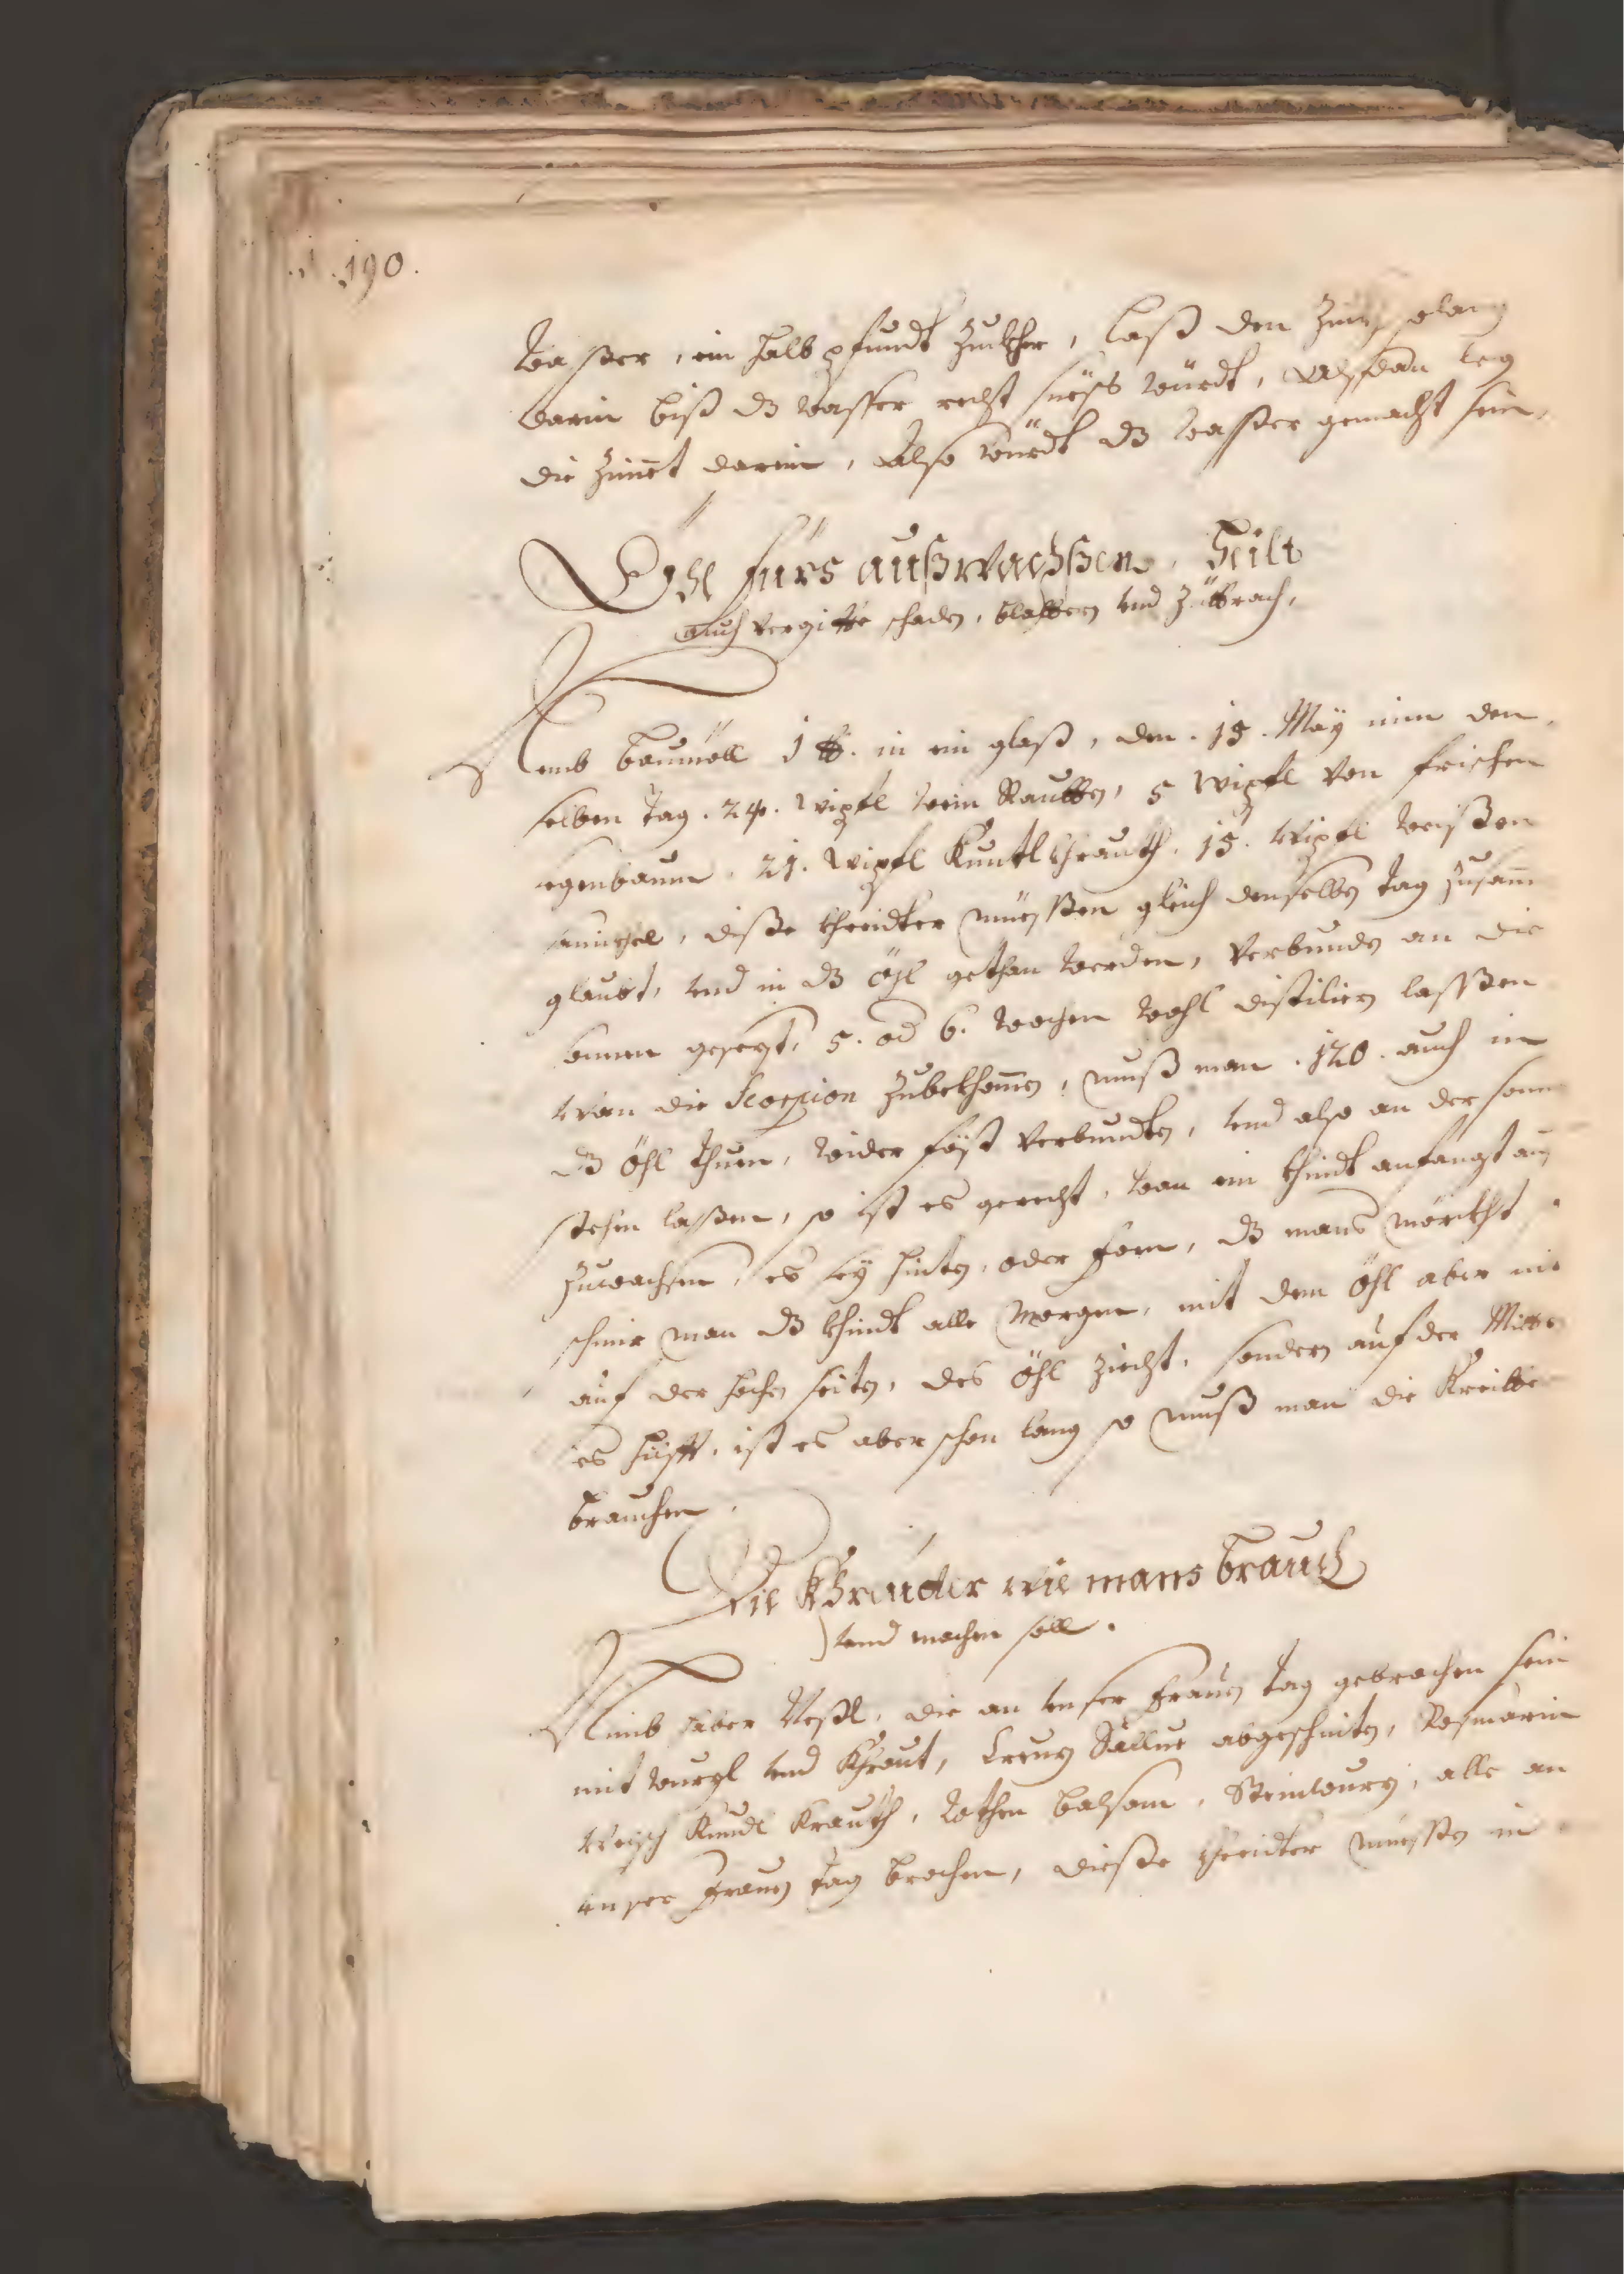 190.
wasser, ein halb pfundt Zuckher, laß den Zim solang
darin biß dz wasser recht süess würdt, alsdan leg
die Zimet darein, also würdt dz wasser gemacht sein,
Öhl fürs außwachßen, heilt
auch vergiffte schaden, blattern und
Nemb baumöll 1 ℔. in ein glaß, den . 15 . Maÿ nim den
selben tag . 24 . wipfl wein Rautten, 5 wipfl von frischen
segenbaum . 21 . wipfl Kuntlkhrauth . 15 . wipfl weissen
diße khreidter müessen gleich denselben tag zusam
glaubt, und in dz öhl gethan werden, verbunden an die
sonnen gesezt, 5. od 6. wochen wohl distiliern lassen
wan die Scorpion zubekhomen, muß man . 120 . auch in
dz öhl thuen, wider föst verbundten, und also an der sonn
stehen lassen, so ist es gerecht, wan ein khindt anfangt auß
zuwachsen, es seÿ hinten, oder forn, dz mans mörckht
schmir man dz khindt alle morgen, mit dem öhl aber nit
auf der hochen seiten, des öhl ziecht, sondern auf der Mitte
es hilfft, ist es aber schon lang so muß man die Kreitter
brauchen.
Die Khreuter wie mans brauch
und machen soll.
Nimb haber Nessl, die an unser frauen tag gebrochen sein
mit wurzl und Khraut, Creuz Sallue abgeschniten, Rosmarin
weisch Kundl Krauth, rothen balsam, Steinwurz, alle an
unser frauen tag brochen, dieße khreidter müessen in